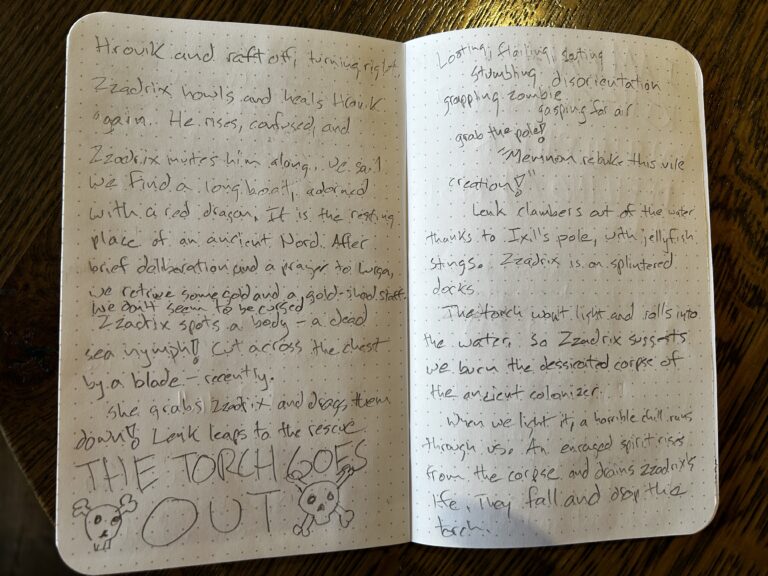 Hrovik and raft off, turning right.
Zzadrix howls and heals Hrovik
again. He rises, confused, and
Zzadrix invites him along. We sail
We find a long boat, adorned
with a red dragon. It is the resting
place of an ancient Nord. After
brief deliberation and a prayer to
we retrieve some gold and a gold-shod staff.
We don't seem to be cursed
Zzadrix spots a body - a dead
sea nymph! Cut across the chest
by a blade - recently.
She grabs Zzadrix and drags them
down! Lenk leaps to the rescue
THE TORCH GOES
OUT
Looting, flailing,
stumbling, disorientation
grappling zombie
gasping for air
grab the pole!
"Memnon rebuke this vile
creation!"
Lenk clambers out of the water
thanks to Ixil's pole, with jellyfish
stings. Zzadrix is on splintered
docks.
The torch won't light and rolls into
the water. So Zzadrix suggests
we burn the dessicated corpse of
the ancient colonizer.
When we light it, a horrible chill runs
through us. An enraged spirit rises
from the corpse and drains Zzadrix's
life. They fall and drop the
torch.